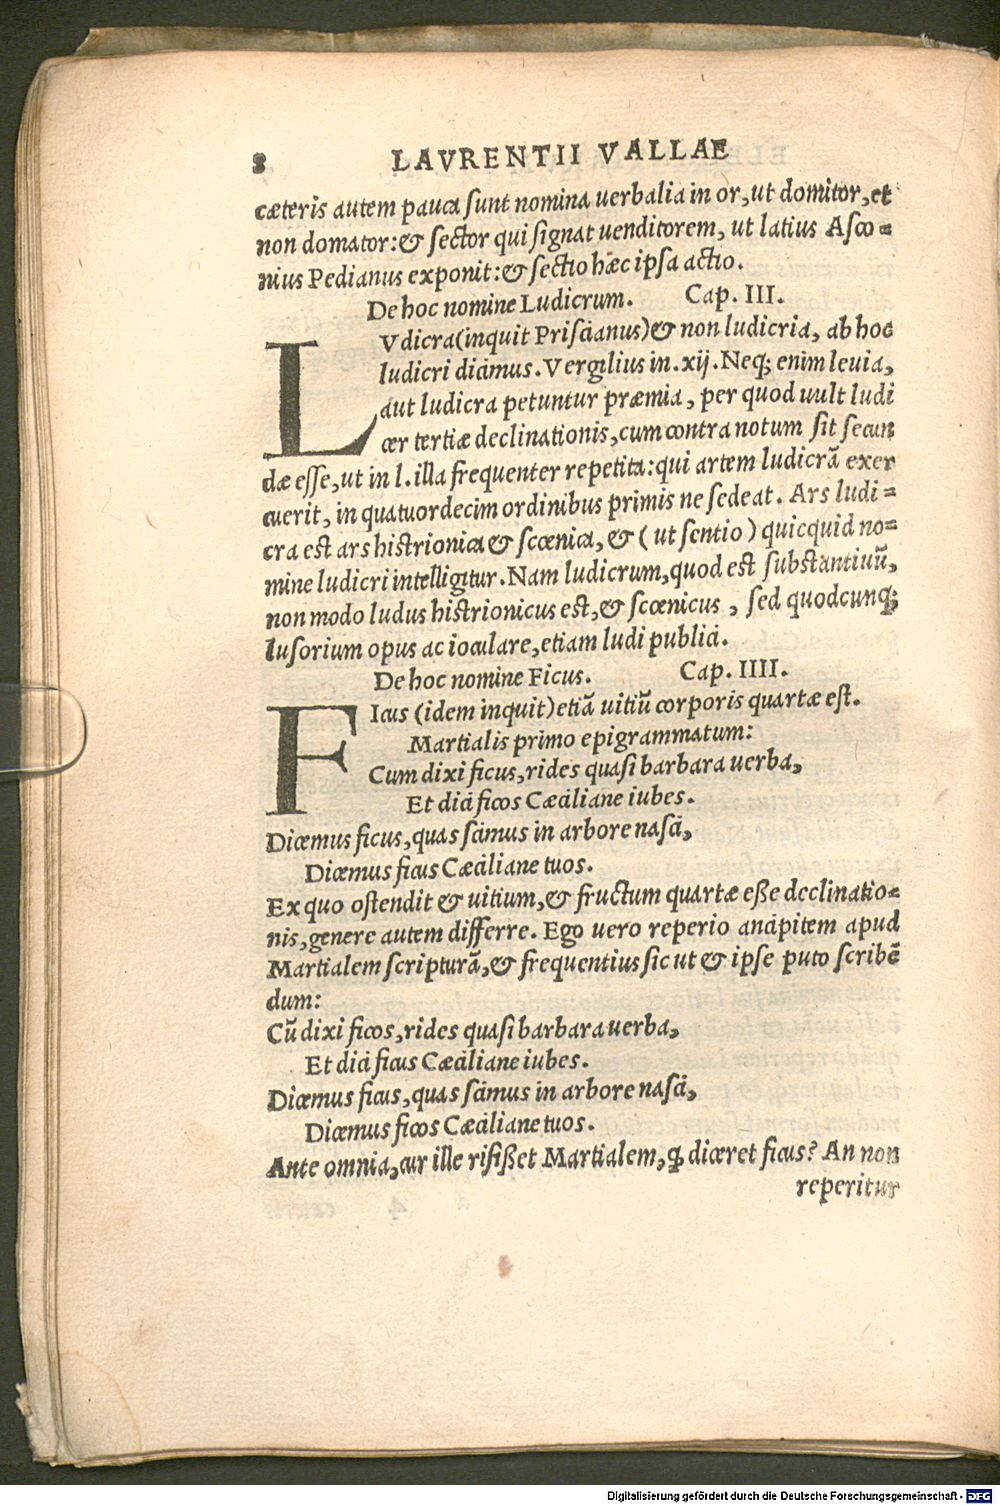 8 LAVRENTII VALLAE
cæteris autem pauca sunt nomina uerbalia in or, ut domitor, et
non domator: & sector qui signat uenditorem, ut latius Asco=
nius Pedianus exponit: & sectio hæc ipsa actio.
De hoc nomine Ludicrum. Cap. III.
LVdicra (inquit Priscianus) & non ludicria, ab hoc
ludicri dicimus. Vergilius in. xij. Neq; enim leuia,
aut ludicra petuntur præmia, per quod uult ludi
cer tertiæ declinationis, cum contra notum sit secun
dæ esse, ut in l. illa frequenter repetita: qui artem ludicrā exer
cuerit, in quatuordecim ordinibus primis ne sedeat. Ars ludi=
cra est ars histrionica & scœnica, & (ut sentio) quicquid no=
mine ludicri intelligitur. Nam ludicrum, quod est substantiuū,
non modo ludus histrionicus est, & scœnicus, sed quodcunq;
lusorium opus ac ioculare, etiam ludi publici.
De hoc nomine Ficus. Cap. IIII.
FIcus (idem inquit) etiā uitiū corporis quartæ est.
Martialis primo epigrammatum:
Cum dixi ficus, rides quasi barbara uerba,
Et dici ficos Cæciliane iubes.
Dicemus ficus, quas scimus in arbore nasci,
Dicemus ficus Cæciliane tuos.
Ex quo ostendit & uitium, & fructum quartæ eße declinatio=
nis, genere autem differre. Ego uero reperio ancipitem apud
Martialem scripturā, & frequentius sic ut & ipse puto scribē
dum:
Cū dixi ficos, rides quasi barbara uerba,
Et dici ficus Cæciliane iubes.
Dicemus ficus, quas scimus in arbore nasci,
Dicemus ficos Cæciliane tuos.
Ante omnia, cur ille risißet Martialem, ꝙ diceret ficus? An non
reperitur
Digitalisierung gefördert durch die Deutsche Forschungsgemeinschaft - DFG